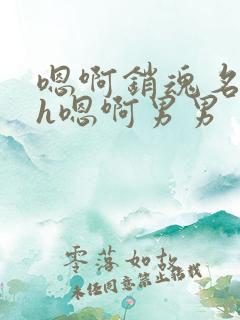 嗯啊銷魂名
h嗯啊男男
零落如故
未经同意禁止搭载